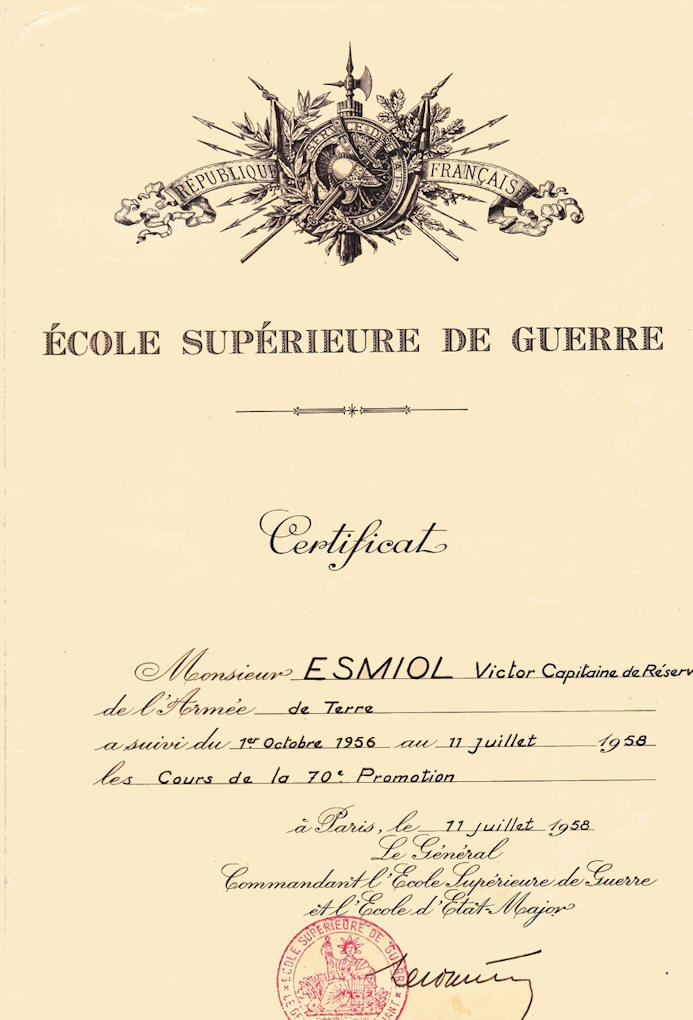 RÉPUBLIQUE FRANÇAISE
SERVICE D'ÉTAT-MAJOR
ÉCOLE SUPÉRIEURE DE GUERRE
Certificat
Monsieur ESMIOL Victor Capitaine de Réserv
de l'Armée de Terre
a suivi du 1er Octobre 1956 au 11 juillet 1958
les Cours de la 70e Promotion
à Paris, le 11 juillet 1958
Le Général
Commandant l'Ecole Supérieure de Guerre
et l'Ecole d'Etat-Major
ECOLE SUPERIEURE DE GUERR